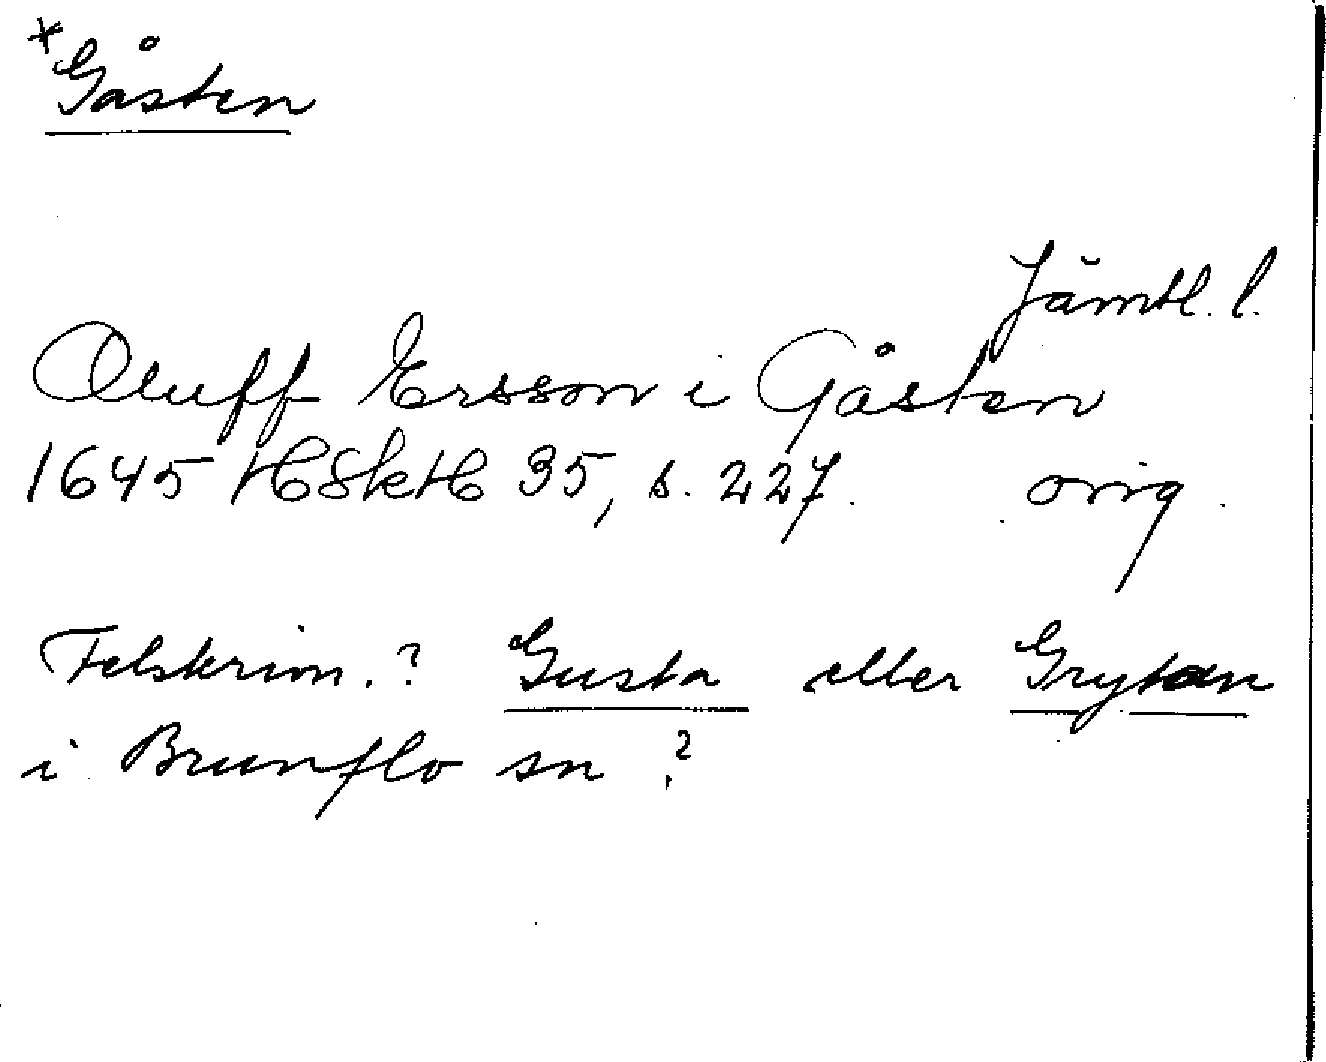 *Gåsten
Jämtl. l.
Oluff Ersson i Gåsten
1645 HSkH 35, s. 227. orig.
Felskrivn.? Gusta eller Grytan
i Brunflo sn?